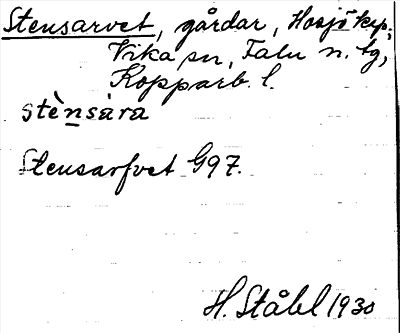 Stensarvet, gårdar, Hosjö kp.,
Vika sn, Falu n. tg,
Kopparb. l.
stènsàra
Stensarfvet G97.
H. Ståhl 1930